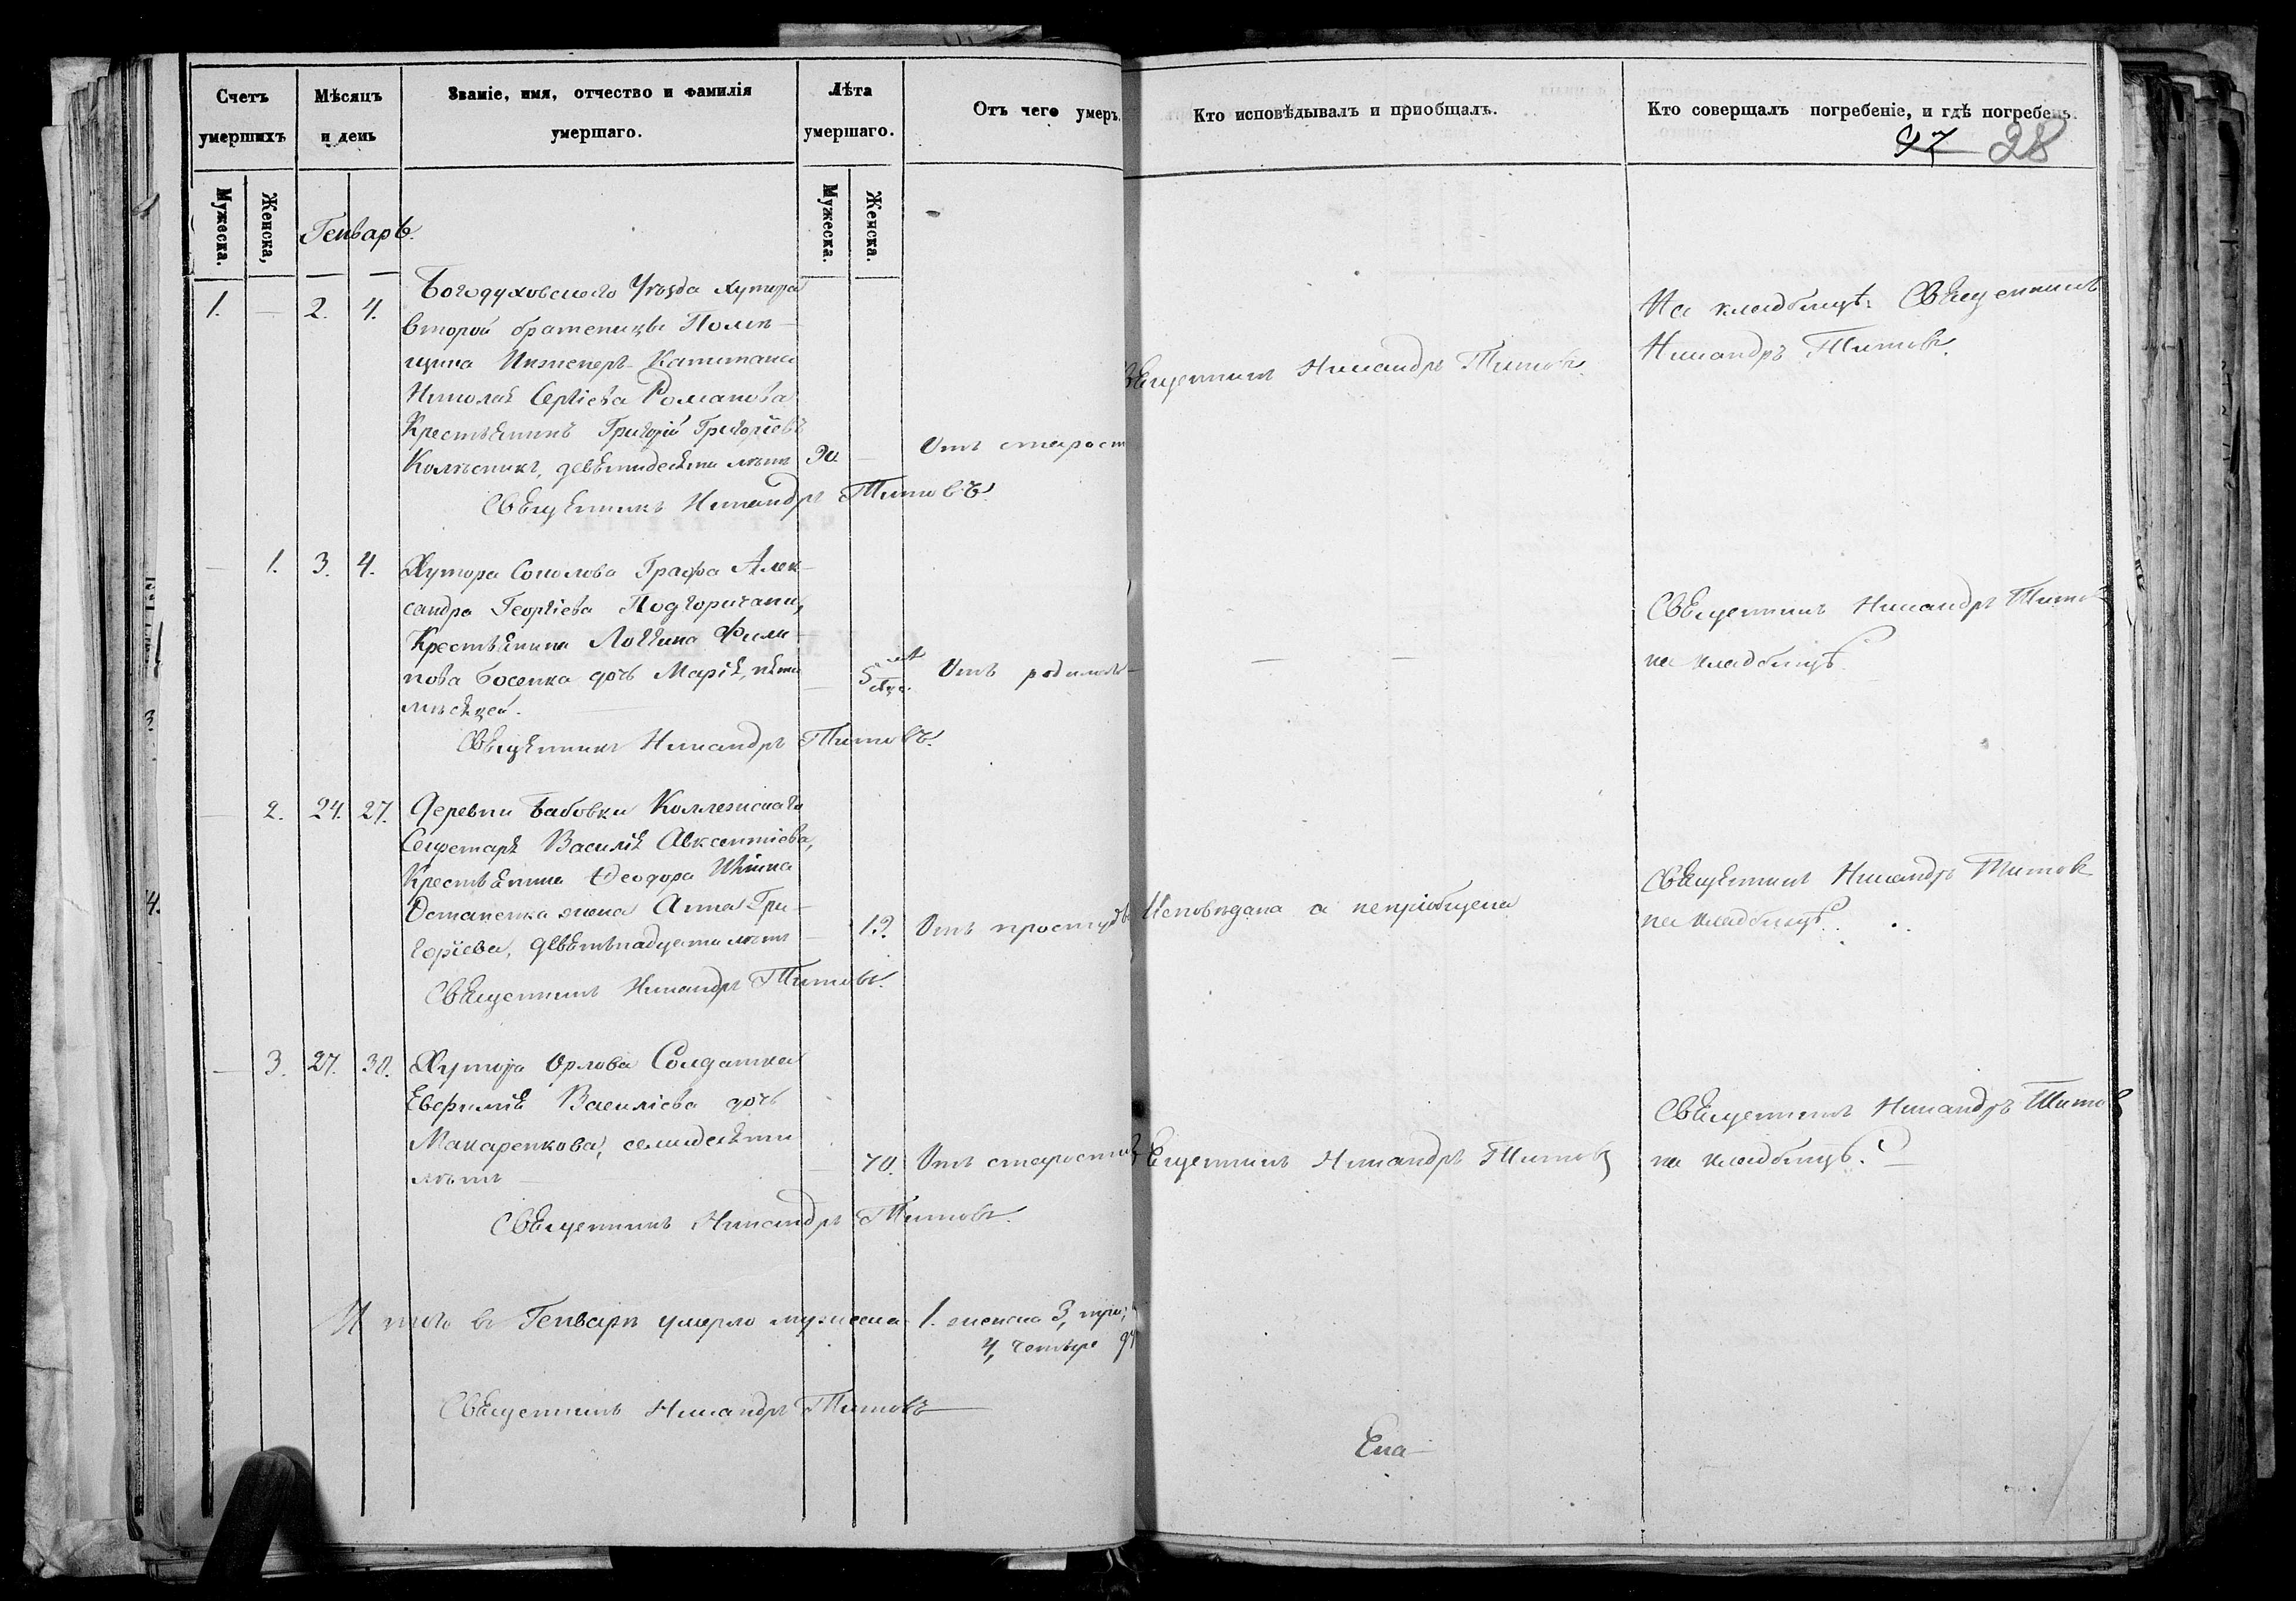 Счетъ умершихъ
Мѣсяцъ и день
Званіе, имя, отчество и фамилія умершаго.
Лѣта умершаго.
Отъ чего умеръ.
Кто исповѣдывалъ и приобщалъ.
Кто совершалъ погребеніе, и гдѣ погребенъ.
97 28
Мужеска.
Женска,
Мужеска.
Женска.
Генварь.
1. — 2. 4.
Богодуховскаго Уѣзда хутора
второй братеницы Помѣ-
щика Инженеръ-Капитана
Николая Сергіева Романова
Крестьянинъ Григорій Григоріевъ
Колѣсникъ, девяндесяти лѣтъ 90. — Отъ старост
Священникъ Никандръ Титовъ.
Священникъ Никандръ Титовъ.
На кладбищѣ. Священникъ
Никандръ Титовъ.
— 1. 3. 4. Хутора Соколова Графа Алек-
сандра Георгіева Подгоричани,
Крестьянина Логгина Фили-
пова Босенка дочь Марія, пяти — 5 мѣс. Отъ родимъ-
мѣсяцей.
Священникъ Никандръ Титовъ.
— —
Священникъ Никандръ Тито
на кладбищѣ.
— 2. 24. 27. Деревни Бабовки Коллежскаго
Секретаря Василія Авксентіева,
Крестьянина Ѳеодора
Остапенка жена Анна Гри-
горіева, девятьнадцати лѣтъ — 19. Отъ простуды
Священникъ Никандръ Титовъ.
Исповѣдана а непріобщена
Священникъ Никандръ Титов
на кладбищѣ.
— 3. 27. 30. Хутора Орлова Солдатка
Евфимія Василіева дочь
Макаренкова, семидесяти
лѣтъ — 70. Отъ старости
Священникъ Никандръ Титовъ.
Священникъ Никандръ Титовъ
Священникъ Никандръ Титов
на кладбищѣ.
И того въ Генварѣ умерло мужеска 1. женска 3, три,
4, четыре
Священникъ Никандръ Титовъ